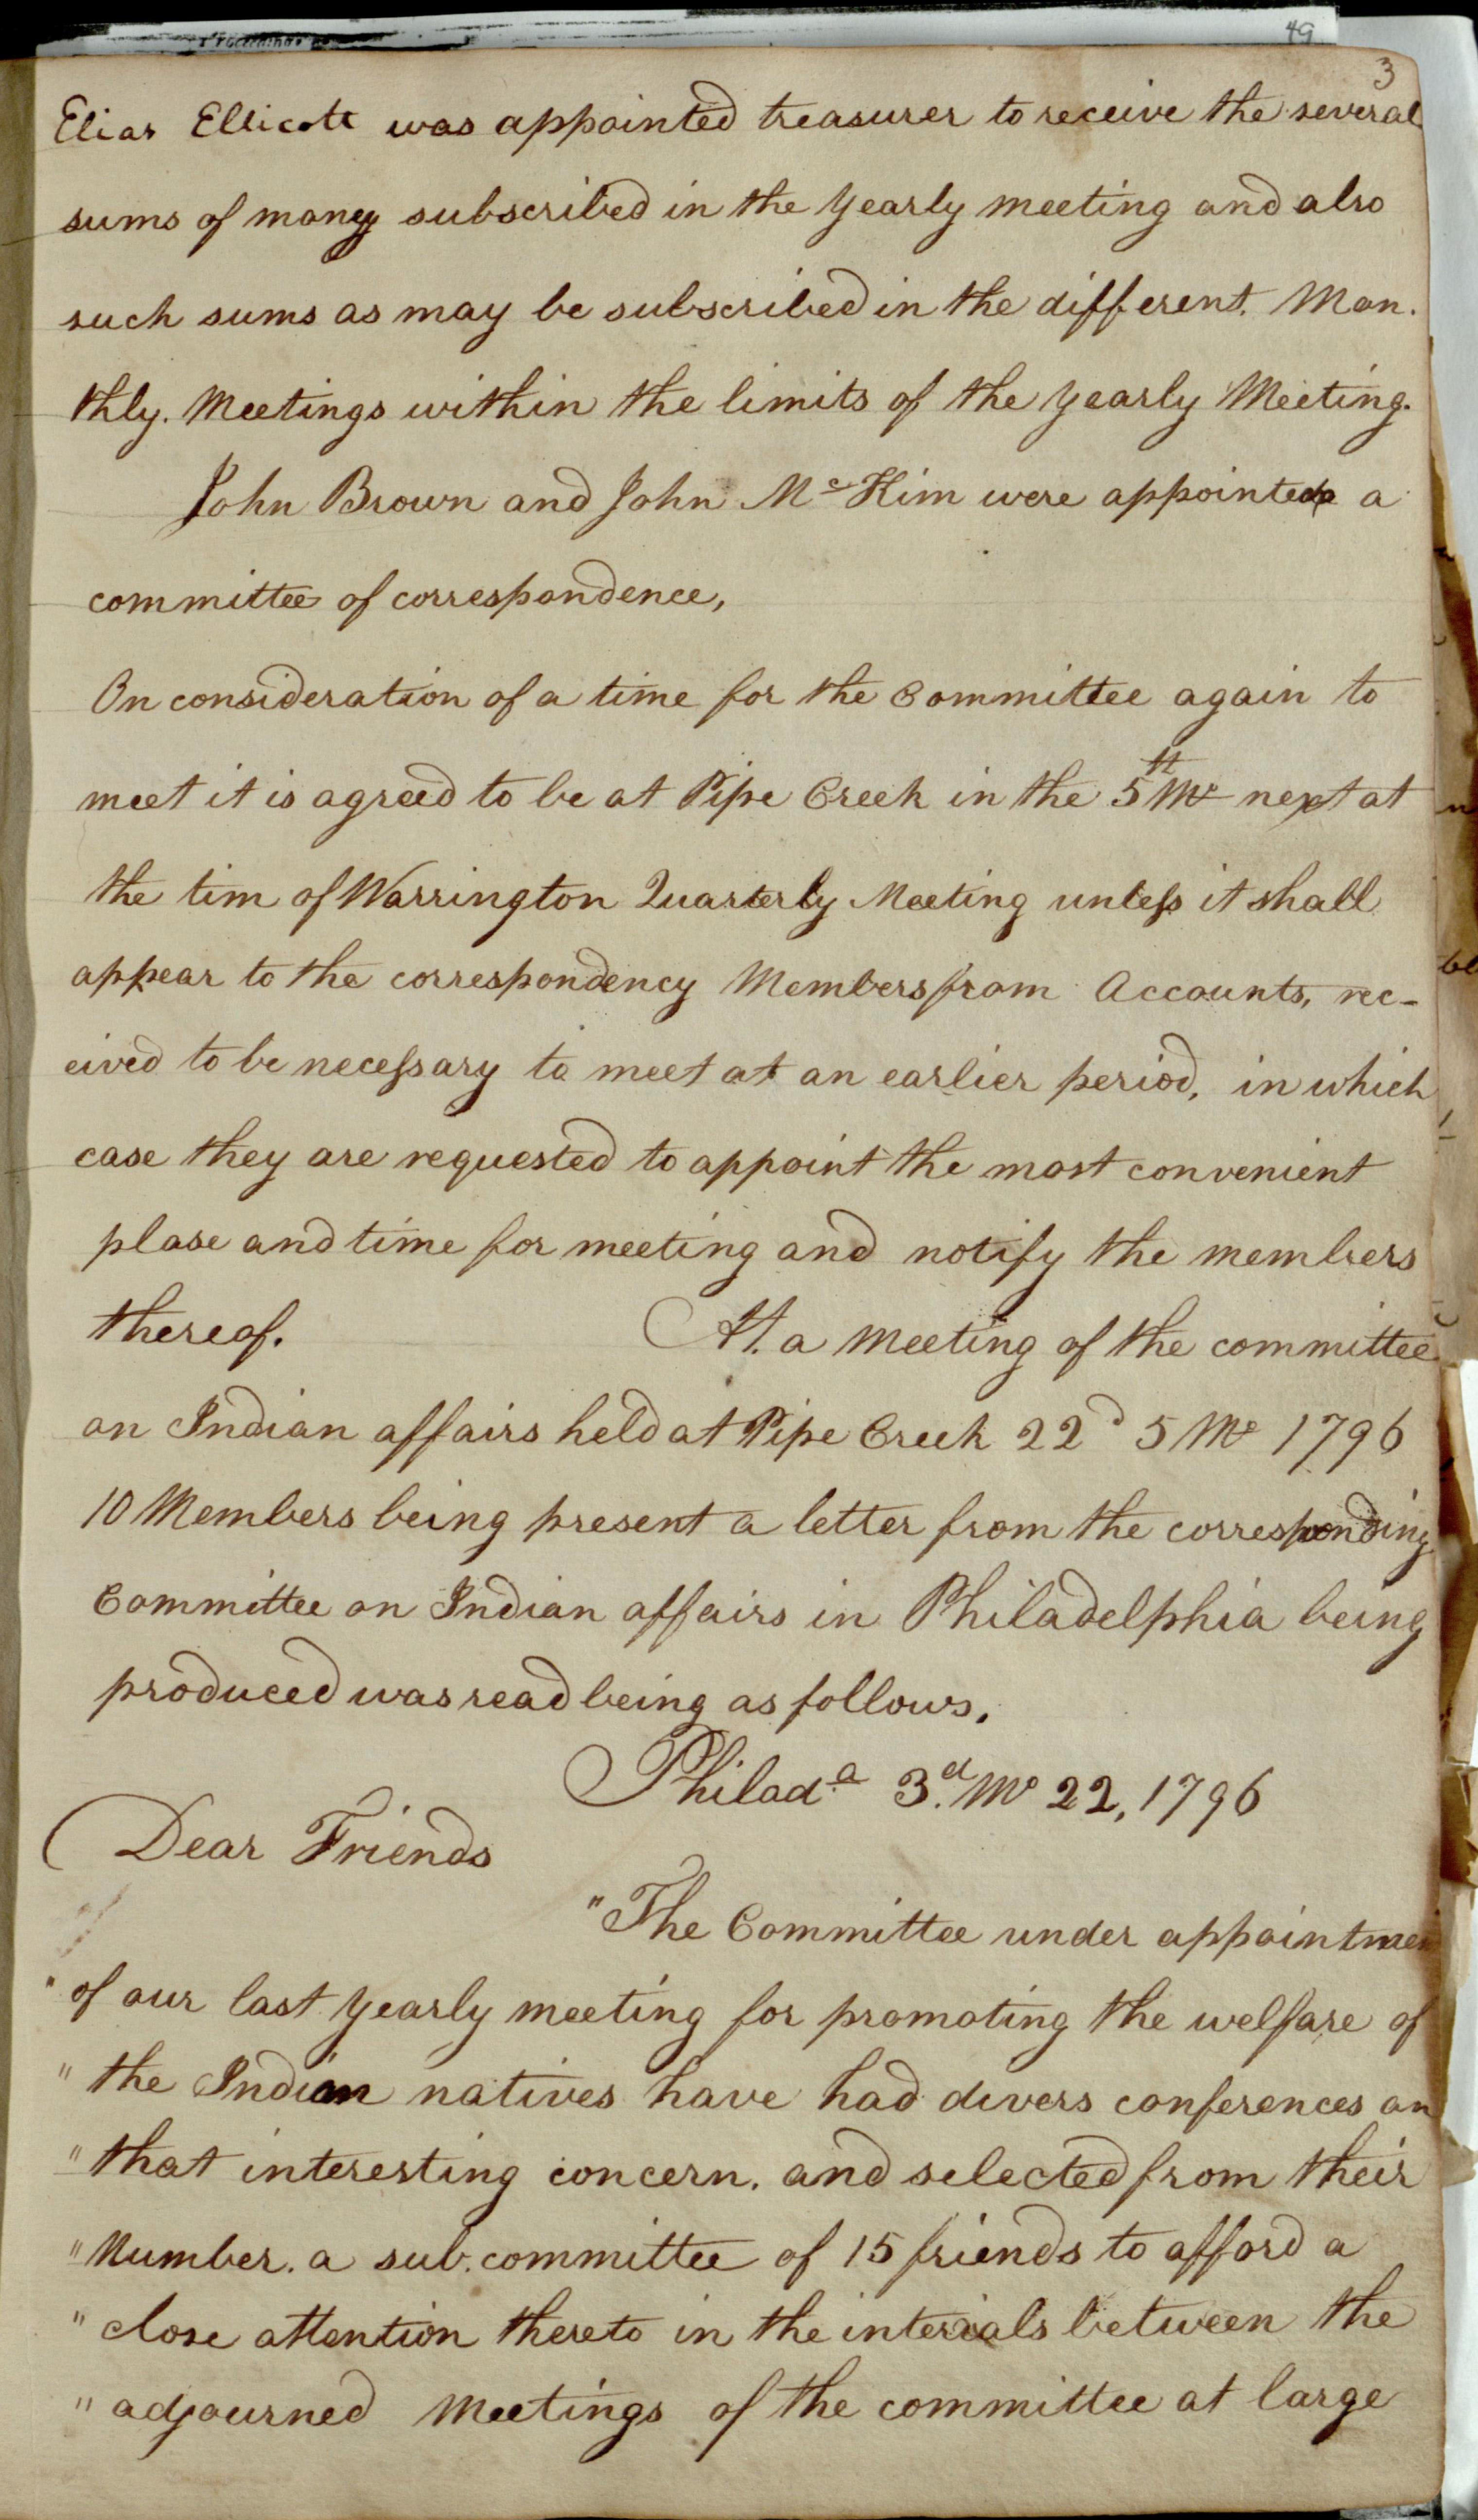 49
3
Elias Ellicott was appointed treasurer to receive the several
sums of money subscribed in the Yearly meeting and also
such sums as may be subscribed in the different. Mon.
thly. Meetings within the limits of the Yearly Meeting.
John Brown and John McKim were appointed a
committee of correspondence,
On consideration of a time for the Committee again to
meet it is agreed to be at Pipe Creek in the 5th Mo next at
the tim of Warrington Quarterly Meeting unless it shall
appear to the correspondency Members from Accounts, rec-
eived to be necessary to meet at an earlier period, in which
case they are requested to appoint the most convenient
plase and time for meeting and notify the members
thereof. At. a Meeting of the committee
on Indian affairs held at Pipe Creek 22d 5 Mo 1796
10 Members being present a letter from the corresponding
Committee on Indian affairs in Philadelphia being
produced was read being as follows.
Philada 3d. Mo 22, 1796
Dear Friends
"The Committee under appointmen
" of our last Yearly meeting for promoting the welfare of
" the Indian natives have had divers conferences on
" that interesting concern. and selected from their
" Number. a sub. committee of 15 friends to afford a
" close attention thereto in the intervals between the
" adjourned Meetings of the committee at large